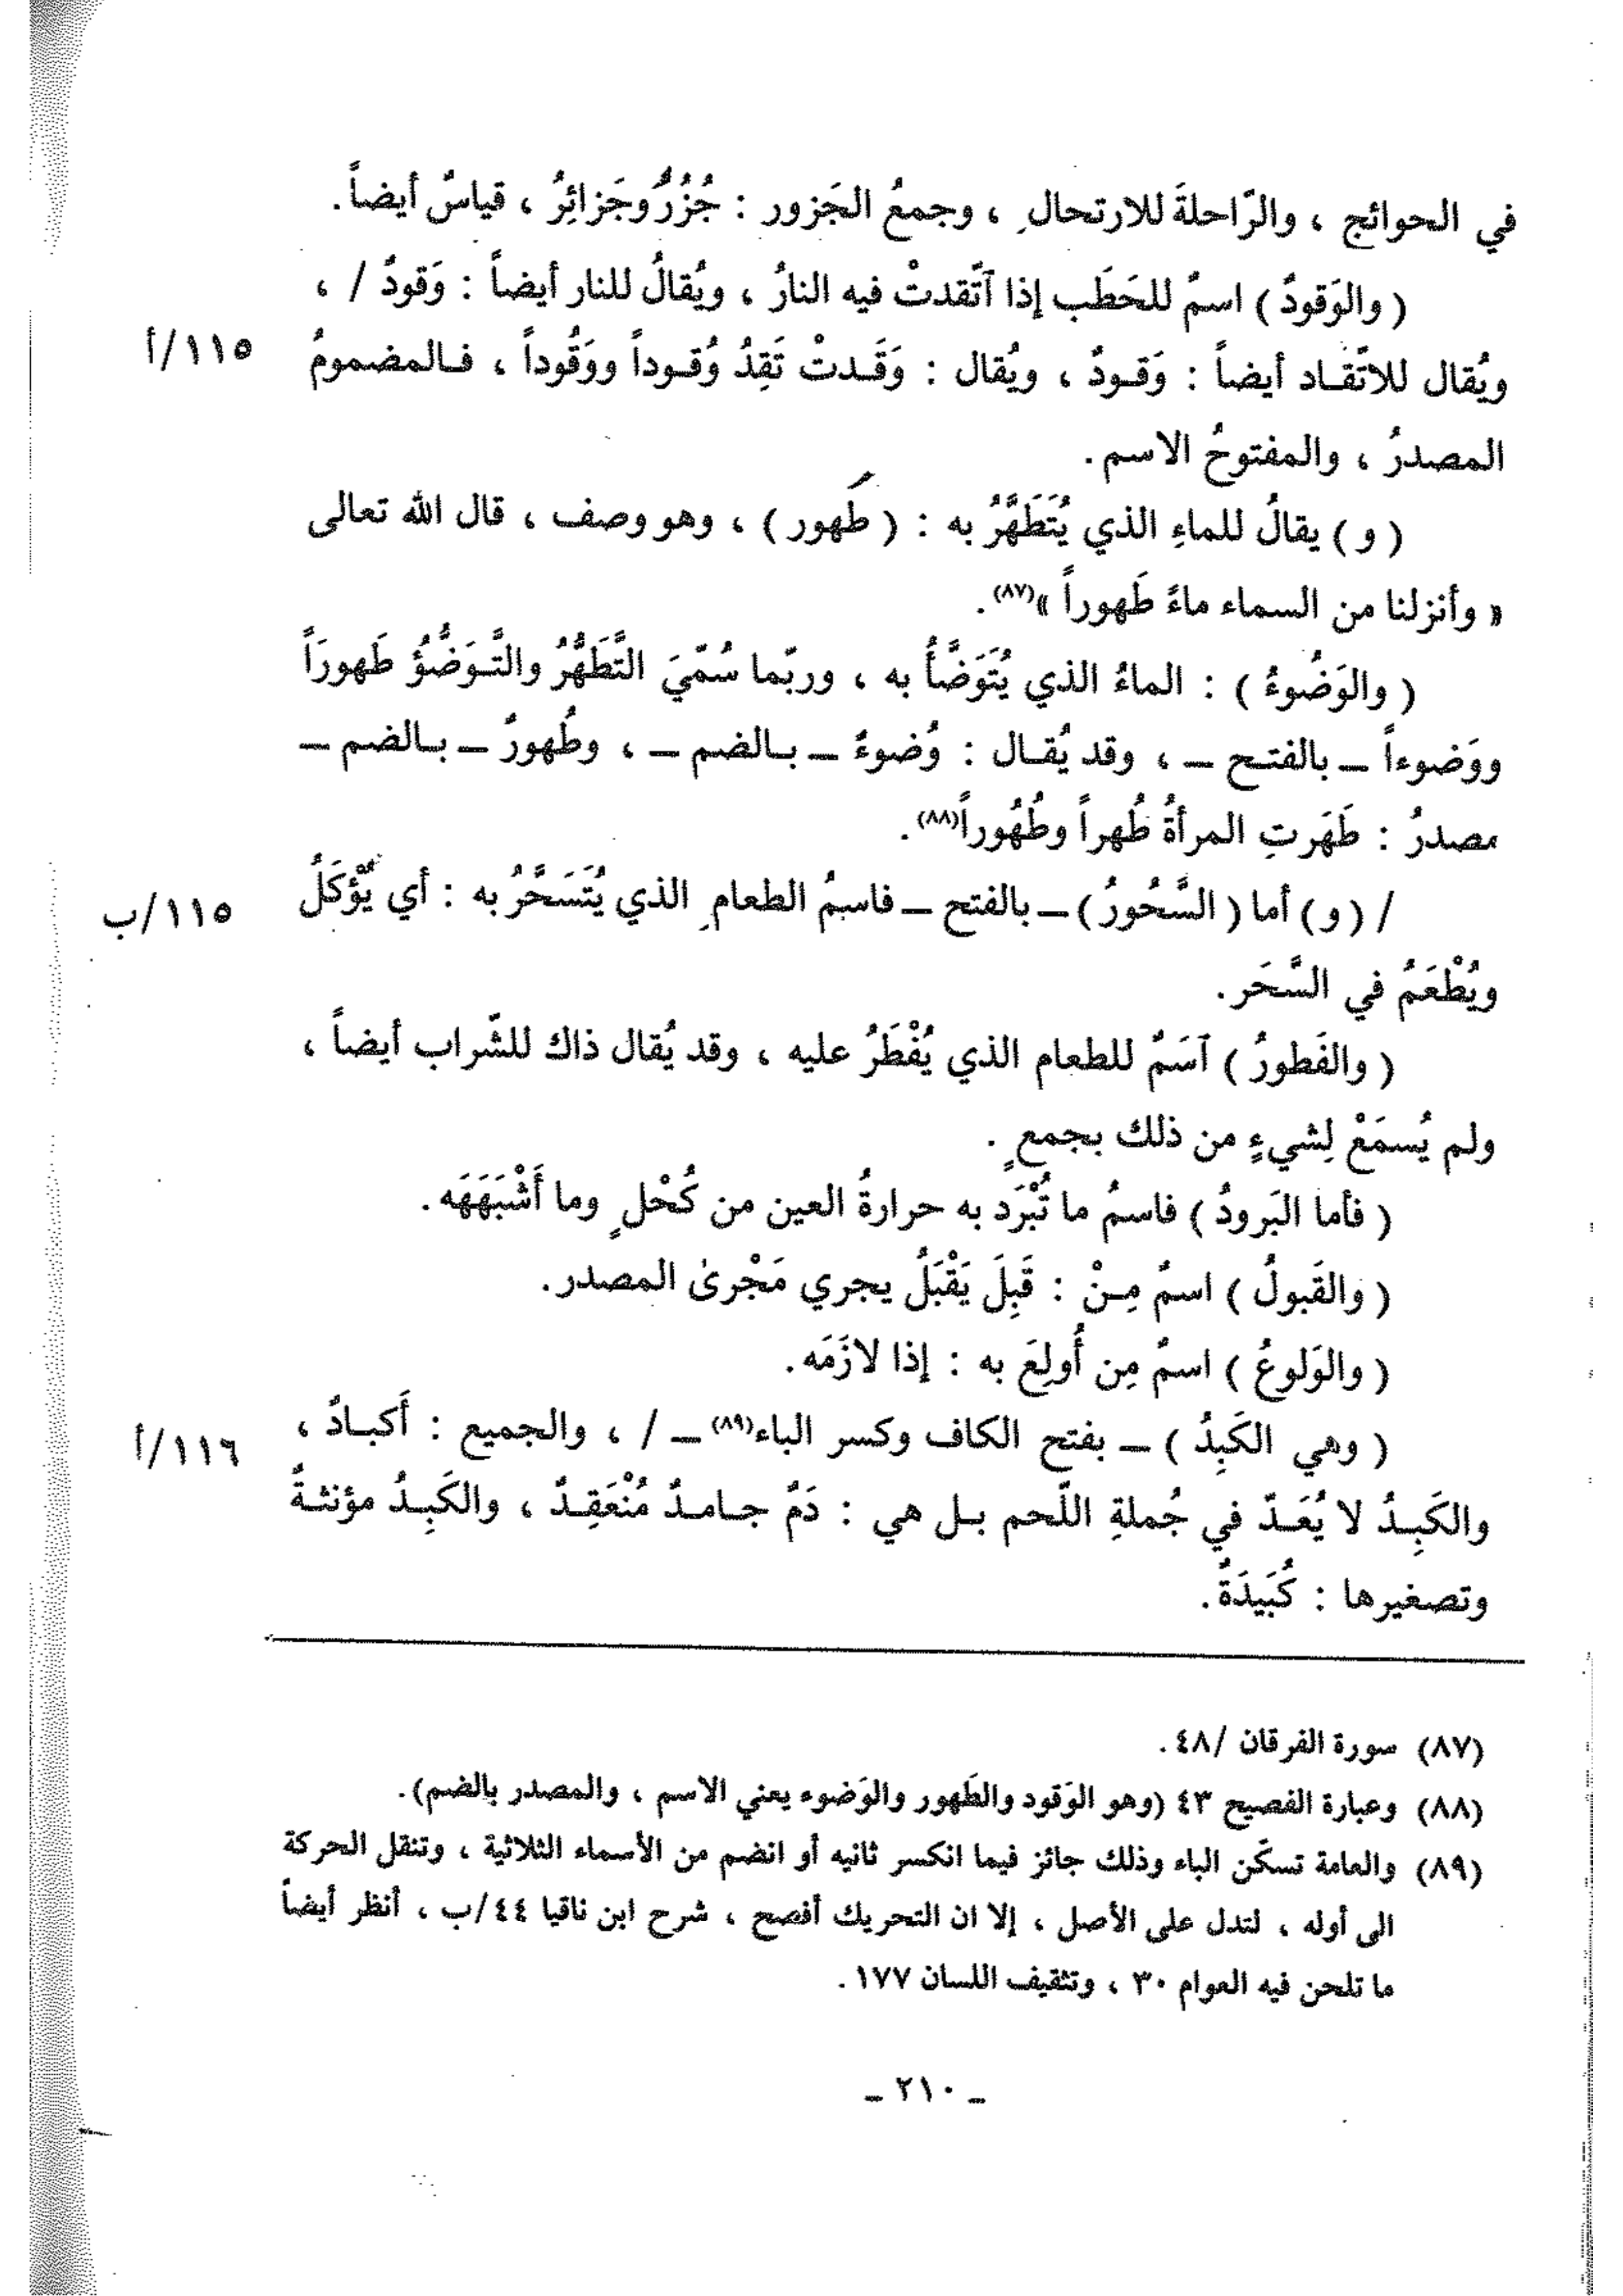 في الحوائج ، والرّاحلةَ للارتحالِ ، وجمعُ الجَزور : جُزُرٌ وجَزائِرُ ، قياسٌ أيضاً .
( والوَقودُ ) اسمٌ للحَطَب إذا آتّقدتْ فيه النارُ ، ويُقالُ للنار أيضاً : وَقودٌ / ،
١١٥/أ
ويُقال للاتّقاد أيضاً : وَقودٌ ، ويُقال : وَقَدتْ تَقِدُ وُقوداً ووَقُوداً ، فالمضمومُ
المصدرُ ، والمفتوحُ الاسم .
( و ) يقالُ للماءِ الذي يُتَطَهَّرُ به : ( طَهور ) ، وهو وصف ، قال الله تعالى
« وأنزلنا من السماء ماءً طَهوراً »(٨٧) .
( والوَضُوءُ ) : الماءُ الذي يُتَوَضَّأُ به ، وربّما سُمّيَ التَّطَهُّرُ والتَّوَضُّؤُ طَهورَاً
ووَضوءاً ــ بالفتح ــ ، وقد يُقال : وُضوءٌ ــ بالضم ــ ، وطُهورٌ ــ بالضم ــ
مصدرُ : طَهَرتِ المرأةُ طُهراً وطُهُوراً(٨٨) .
/ ( و ) أما ( السَّحُورُ ) ــ بالفتح ــ فاسمُ الطعامِ الذي يُتَسَحَّرُ به : أي يُؤْكَلُ
١١٥/ب
ويُطْعَمُ في السَّحَر .
( والفَطورُ ) آسَمٌ للطعام الذي يُفْطَرُ عليه ، وقد يُقال ذاك للشّراب أيضاً ،
ولم يُسمَعْ لِشيءٍ من ذلك بجمعٍ .
( فأما البَرودُ ) فاسمُ ما تُبْرَد به حرارةُ العين من كُحْلٍ وما أَشْبَهَهَه .
( والقَبولُ ) اسمٌ مِنْ : قَبِلَ يَقْبَلُ يجري مَجْرىٰ المصدر .
( والوَلوعُ ) اسمٌ مِن أُولِعَ به : إذا لازَمَه .
( وهي الكَبِدُ ) ــ بفتح الكاف وكسر الباء(٨٩) ــ / ، والجميع : أَكبادٌ ،
١١٦/أ
والكَبِدُ لا يُعَدّ في جُملةِ اللّحم بل هي : دَمٌ جامدٌ مُنْعَقِدٌ ، والكَبِدُ مؤنثةٌ
وتصغيرها : كُبَيدَةٌ .
(٨٧) سورة الفرقان /٤٨ .
(٨٨) وعبارة الفصيح ٤٣ (وهو الوَقود والطَهور والوَضوء يعني الاسم ، والمصدر بالضم) .
(٨٩) والعامة تسكّن الباء وذلك جائز فيما انكسر ثانيه أو انضم من الأسماء الثلاثية ، وتنقل الحركة
الى أوله ، لتدل على الأصل ، إلا ان التحريك أفصح ، شرح ابن ناقيا ٤٤/ب ، أنظر أيضاً
ما تلحن فيه العوام ٣٠ ، وتثقيف اللسان ١٧٧ .
ــ ٢١٠ ــ